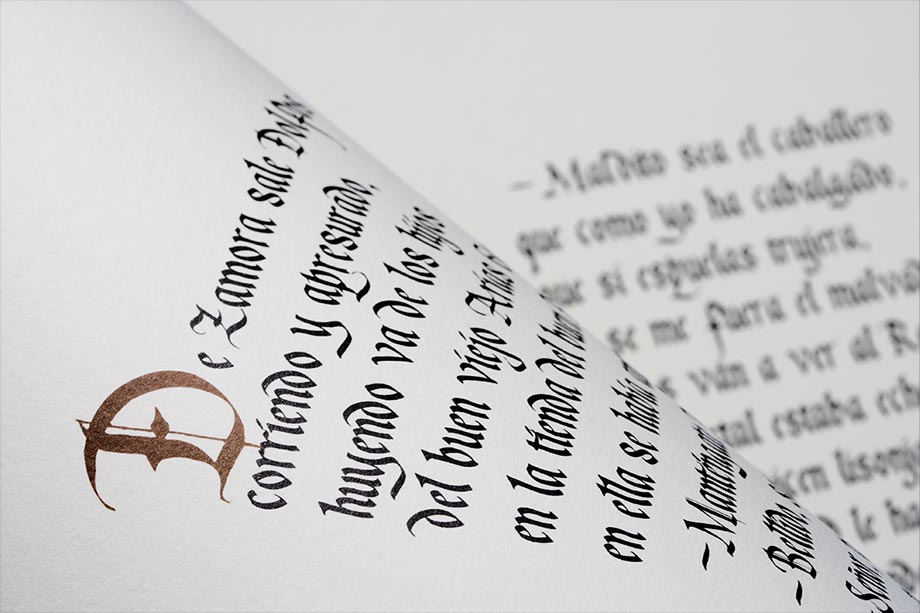 De Zamora sale Dolfos
corriendo y apresurado,
huyendo va de los hijos
del buen viejo Arias
en la tienda del
en ella se había
—Mantenga
—Bellido
Señor
—Maldito sea el caballero
que como yo ha cabalgado,
que si espuelas trujera,
se me fuera el malvado
ván a ver al
estaba